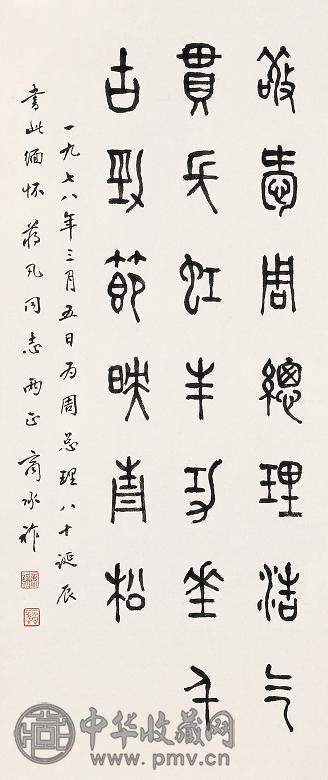 敬愛周總理浩气
貫長虹丰功垂千
古勁節映青松
一九七八年三月五日为周总理八十诞辰
書此緬怀 蒋凡同志两正 商承祚
中华收藏网
www.pmv.cn